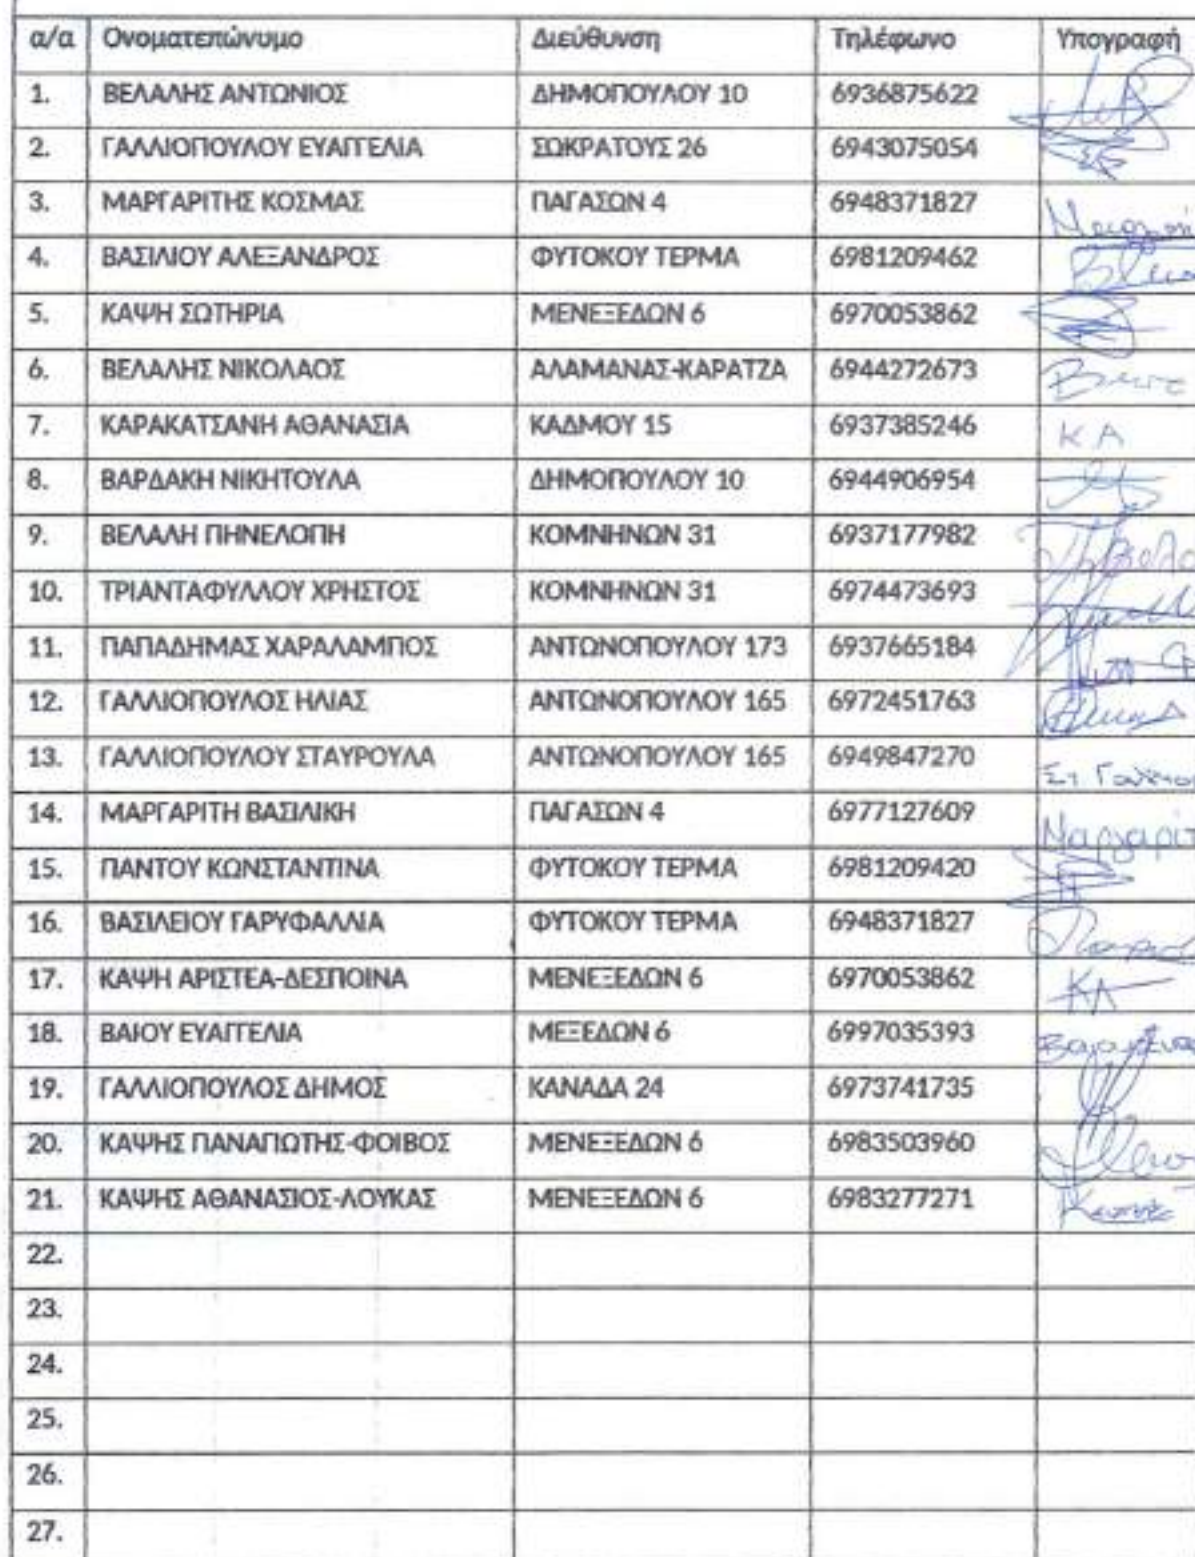 α/α Ονοματεπώνυμο Διεύθυνση Τηλέφωνο Υπογραφή
1. ΒΕΛΑΛΗΣ ΑΝΤΩΝΙΟΣ ΔΗΜΟΠΟΥΛΟΥ 10 6936875622
2. ΓΑΛΛΙΟΠΟΥΛΟΥ ΕΥΑΓΓΕΛΙΑ ΣΩΚΡΑΤΟΥΣ 26 6943075054
3. ΜΑΡΓΑΡΙΤΗΣ ΚΟΣΜΑΣ ΠΑΓΑΣΩΝ 4 6948371827
4. ΒΑΣΙΛΙΟΥ ΑΛΕΞΑΝΔΡΟΣ ΦΥΤΟΚΟΥ ΤΕΡΜΑ 6981209462
5. ΚΑΨΗ ΣΩΤΗΡΙΑ ΜΕΝΕΞΕΔΩΝ 6 6970053862
6. ΒΕΛΑΛΗΣ ΝΙΚΟΛΑΟΣ ΑΛΑΜΑΝΑΣ-ΚΑΡΑΤΖΑ 6944272673
7. ΚΑΡΑΚΑΤΣΑΝΗ ΑΘΑΝΑΣΙΑ ΚΑΔΜΟΥ 15 6937385246 ΚΑ
8. ΒΑΡΔΑΚΗ ΝΙΚΗΤΟΥΛΑ ΔΗΜΟΠΟΥΛΟΥ 10 6944906954
9. ΒΕΛΑΛΗ ΠΗΝΕΛΟΠΗ ΚΟΜΝΗΝΩΝ 31 6937177982
10. ΤΡΙΑΝΤΑΦΥΛΛΟΥ ΧΡΗΣΤΟΣ ΚΟΜΝΗΝΩΝ 31 6974473693
11. ΠΑΠΑΔΗΜΑΣ ΧΑΡΑΛΑΜΠΟΣ ΑΝΤΩΝΟΠΟΥΛΟΥ 173 6937665184
12. ΓΑΛΛΙΟΠΟΥΛΟΣ ΗΛΙΑΣ ΑΝΤΩΝΟΠΟΥΛΟΥ 165 6972451763
13. ΓΑΛΛΙΟΠΟΥΛΟΥ ΣΤΑΥΡΟΥΛΑ ΑΝΤΩΝΟΠΟΥΛΟΥ 165 6949847270
14. ΜΑΡΓΑΡΙΤΗ ΒΑΣΙΛΙΚΗ ΠΑΓΑΣΩΝ 4 6977127609 Μαργαρίτ
15. ΠΑΝΤΟΥ ΚΩΝΣΤΑΝΤΙΝΑ ΦΥΤΟΚΟΥ ΤΕΡΜΑ 6981209420
16. ΒΑΣΙΛΕΙΟΥ ΓΑΡΥΦΑΛΛΙΑ ΦΥΤΟΚΟΥ ΤΕΡΜΑ 6948371827
17. ΚΑΨΗ ΑΡΙΣΤΕΑ-ΔΕΣΠΟΙΝΑ ΜΕΝΕΞΕΔΩΝ 6 6970053862 ΚΑ
18. ΒΑΙΟΥ ΕΥΑΓΓΕΛΙΑ ΜΕΞΕΔΩΝ 6 6997035393
19. ΓΑΛΛΙΟΠΟΥΛΟΣ ΔΗΜΟΣ ΚΑΝΑΔΑ 24 6973741735
20. ΚΑΨΗΣ ΠΑΝΑΓΙΩΤΗΣ-ΦΟΙΒΟΣ ΜΕΝΕΞΕΔΩΝ 6 6983503960
21. ΚΑΨΗΣ ΑΘΑΝΑΣΙΟΣ-ΛΟΥΚΑΣ ΜΕΝΕΞΕΔΩΝ 6 6983277271
22.
23.
24.
25.
26.
27.